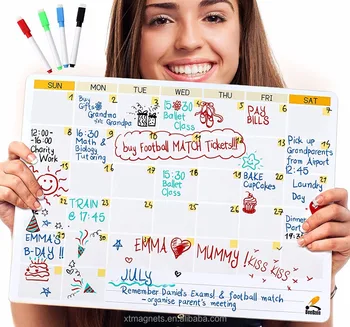 SUN MON TUE WED THU FRI SAT
1 2 3 4 5 6 7
Buy
Gifts
Grandma
Grandpa
15:30
Ballet
Class
DAY
BILLS
12:00-
-16:00
Charity
Work
16:30
Math &
Biology
Tutoring
buy Football MATCH Tickets!!!
Pick up
Grandparents
from Airport
12:45
15:30
Ballet
Class
BAKE
CUPCAKES
Laundry
Day
TRAIN
8 17:45
Dinner
Port
19:30
EMMA'S
B-DAY !!
EMMA MUMMY! KISS KISS
JULY
Remember Daniel's Exams! & football match
- organise parent's meeting
xtmagnets.en.alibaba.com